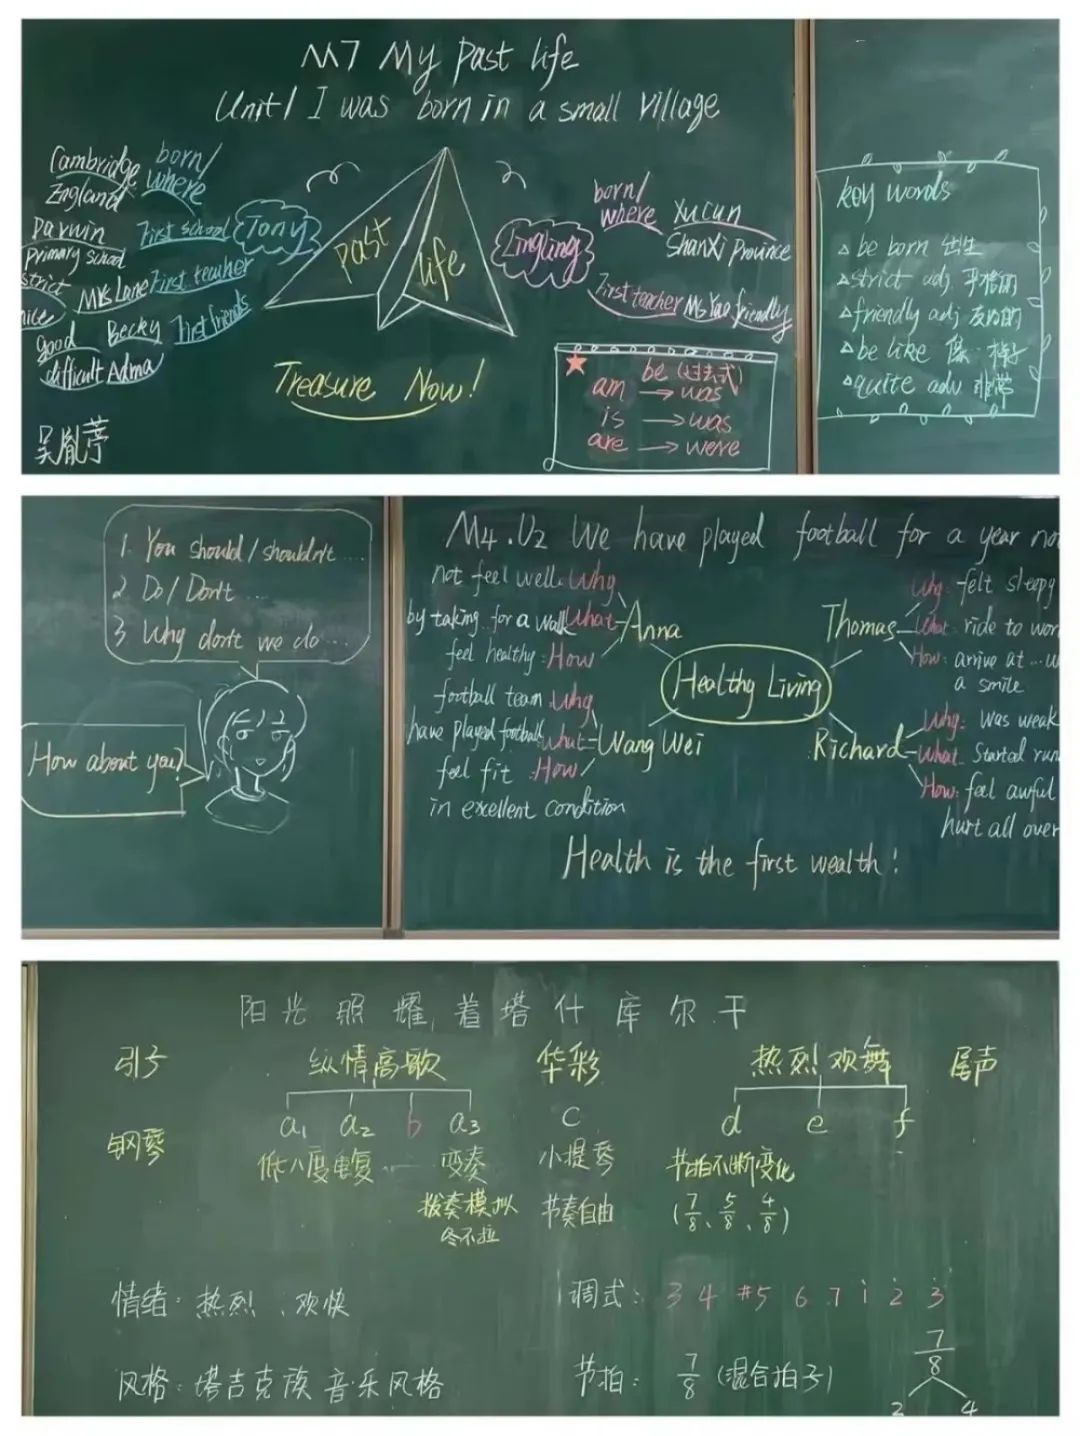 M7 My past life
Unit1 I was born in a small village
Cambridge
England
born/
where
Darwin
primary school
First school
Tony
strict
Mrs Lane
First teacher
nice
good
Becky
First friends
difficult
Adma
past
life
Lingling
born/
where
Xucun
ShanXi province
First teacher Ms Yao friendly
Treasure Now!
be (过去式)
am → was
is → was
are → were
吴胤葶
key words
△ be born 出生
△ strict adj. 严格的
△ friendly adj 友好的
△ be like 像…样子
△ quite adv 非常
1. You should / shouldn't ...
2. Do / Don't ...
3. Why don't we do ...
How about you?
M4.U2 We have played football for a year no
not feel well: Why
by taking for a walk What
Anna
feel healthy: How
football team Why
have played football What
Wang Wei
feel fit: How
in excellent condition
Healthy Living
Thomas
Why: felt sleepy
What: ride to wor
How: arrive at ... w
a smile
Richard
Why: was weak
What: started run
How: feel awful
hurt all over
Health is the first wealth!
阳光照耀着塔什库尔干
引子 纵情高歌 华彩 热烈欢舞 尾声
a1 a2 b a3 C d e f
钢琴 低八度重复 变奏 小提琴 节拍不断变化
拨奏模拟 节奏自由 (7/8、5/8、4/8)
冬不拉
情绪：热烈、欢快 调式：3 4 #5 6 7 i 2 3
风格：塔吉克族音乐风格 节拍：7/8 (混合拍子)
7/8
2 4